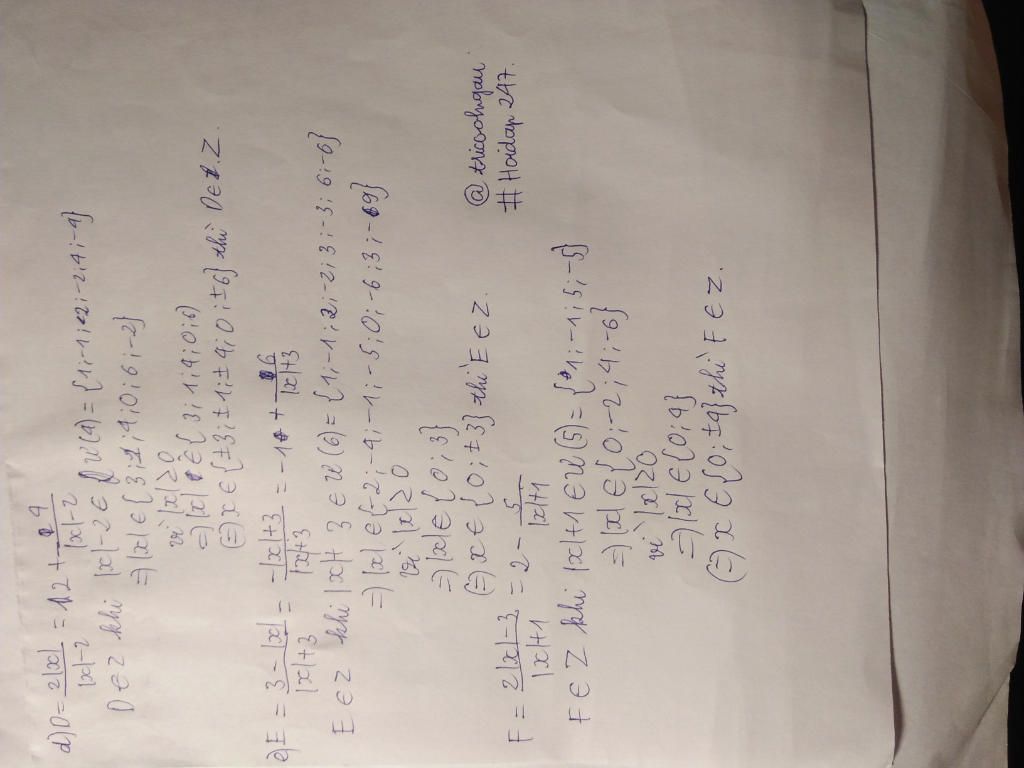 d) D = 2|x| / |x|-2 = 2 + 4 / |x|-2
D ∈ Z khi |x|-2 ∈ Ư(4) = {1;-1;2;-2;4;-4}
=> |x| ∈ {3;1;4;0;6;-2}
vì |x| ≥ 0
=> |x| ∈ {3;1;4;0;6}
(=) x ∈ {±3;±1;±4;0;±6} thì D ∈ Z.
e) E = 3-|x| / |x|+3 = -|x|+3 / |x|+3 = -1 + 6 / |x|+3
E ∈ Z khi |x|+3 ∈ Ư(6) = {1;-1;2;-2;3;-3;6;-6}
=> |x| ∈ {-2;-4;-1;-5;0;-6;3;-9}
vì |x| ≥ 0
=> |x| ∈ {0;3}
(=) x ∈ {0;±3} thì E ∈ Z.
F = 2|x|-3 / |x|+1 = 2 - 5 / |x|+1
F ∈ Z khi |x|+1 ∈ Ư(5) = {1;-1;5;-5}
=> |x| ∈ {0;-2;4;-6}
vì |x| ≥ 0
=> |x| ∈ {0;4}
(=) x ∈ {0;±4} thì F ∈ Z.
# Hoidap 247.